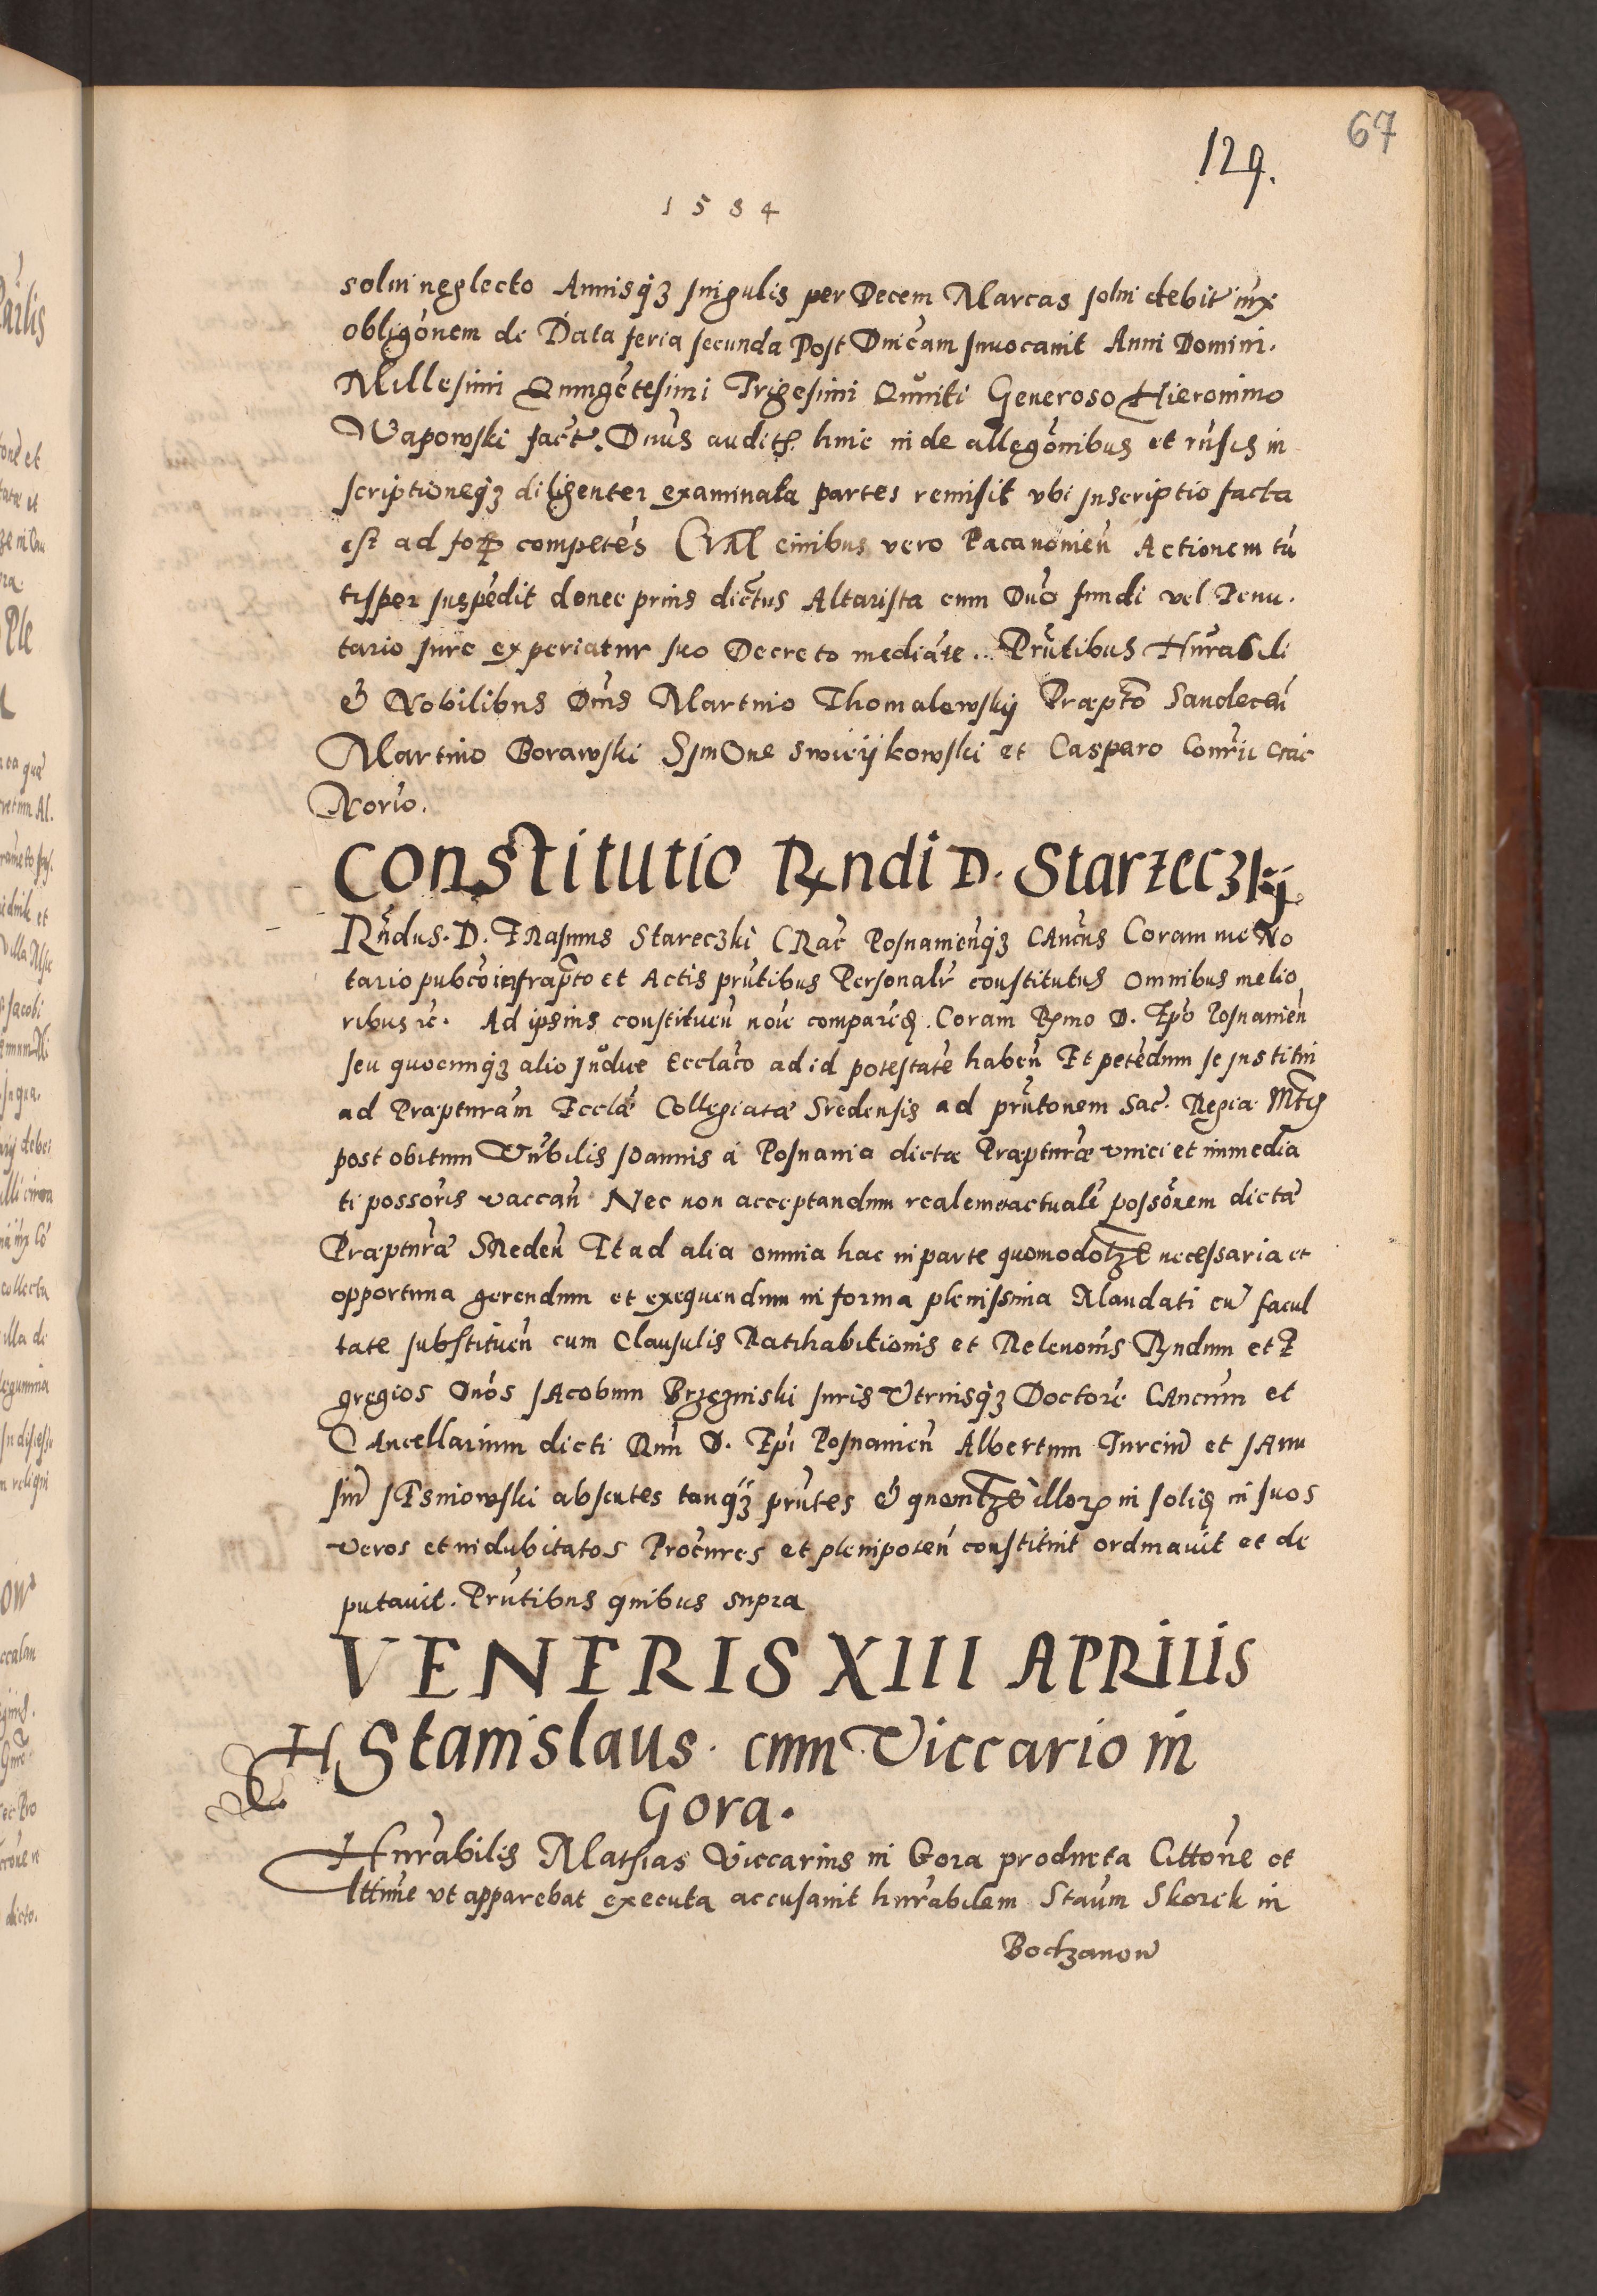 67
129.
1584
solvi neglecto Annisqz singulis per Decem Marcas solvi debit iux
obligonem de Data feria secunda Post Dnicam Invocavit Anni Domini.
Millesimi Quingetesimi Trigesimi Quinti Generoso Hieronimo
Wapowski fact. Dnus audit hinc inde allegonibus et visis in
scriptioneqz diligenter examinata partes remisit ubi Inscriptio facta
est ad for competes civibus vero Pacanovien Actionem ta
tisper suspedit donec prius dictus Altarista cum Dno fundi vel Denu.
tario Iure experiatur suo Decreto mediate. Prntibus Hnrabili
& Nobilibus Dnis Martino Thomalowskij Praepto Sandecen
Martino Borawski Simone Swieijkowski et Casparo Conrii Crac
Norio.
Constitutio Rndi D. Starzeczkij
Rndus. D. Erasmus Stareczki Crac Posnanienqz Cancus Coram me No
tario pubco infrapto et Actis prntibus Personalr constitutus omnibus melio
ribus rc. Ad ipsius constituen noie comparen. Coram Rmo D. Epo Posnanien
seu quocunqz alio Iudice Ecclaco ad id potestate haben Et petedum se institui
ad Praepturam Ecclae Collegiatae Sredensis ad prntonem Sac. Regiae Mtis
post obitum Vnbilis Ioannis à Posnania dictae Praepturae unici et immedia
ti possoris vaccan Nec non acceptandum realem et actuale possonem dictae
Praepturae Sreden Et ad alia omnia hac in parte quomodolzt necessaria et
opportuna gerendum et exequendum in forma plenissima Mandati cu facul
tate substituen cum Clausulis Ratihabitionis et Relevonis Rndum et E
gregios Dnos Iacobum Brzezinski Iuris Utriusqz Doctore Cancum et
Cancellarium dicti Rmi D. Epi Posnanien Albertum Turcin et Ianu
sin absentes tanqz prntes & quemlzt illor in solid in suos
veros et indubitatos Procures et plenipoten constituit ordinavit et de
putavit. Prntibus quibus supra
VENERIS XIII APRILIS
H Stanislaus. cum Viccario in
Gora.
Hnrabilis Mathias Viccarius in Gora producta Cittone et
lttime ut apparebat executa accusavit hnrabilem Staum Skorek in
Boczanow